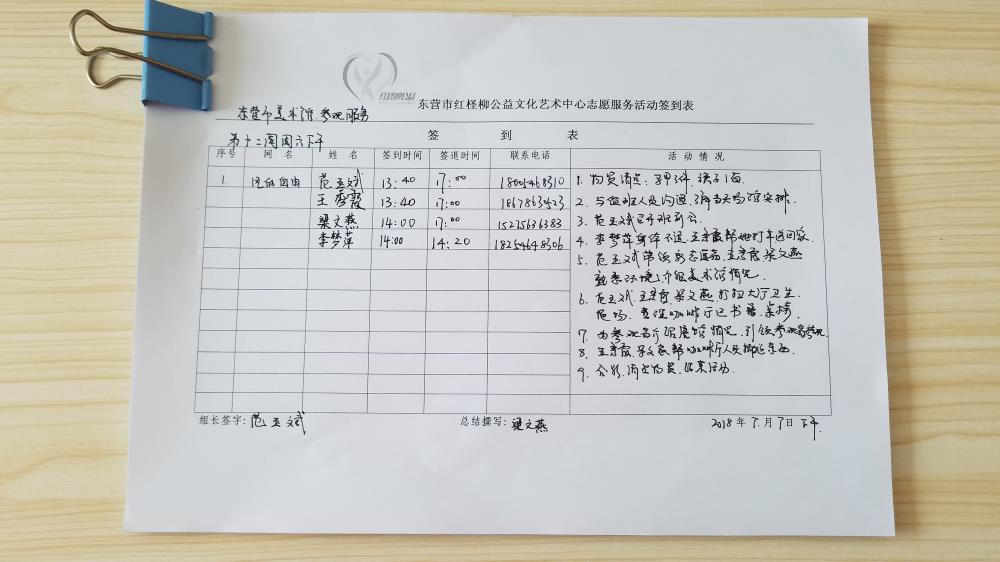 红柽柳公益
东营市红柽柳公益文化艺术中心志愿服务活动签到表
东营市美术馆参观服务
签 到 表
第十二周周六下午
序号 网名 姓名 签到时间 签退时间 联系电话 活动情况
1. 范玉斌 13:40 17:00 18005468310
王秀霞 13:40 17:00 18678635423
梁文燕 14:00 17:00 15275636383
李梦萍 14:00 14:20 18254648306
1. 物资清点:
2. 与值班人员沟通,
3. 范玉斌召开班前会
4. 李梦萍身体不适,王秀霞帮她打车送回家.
5. 范玉斌带领新志愿者,王秀霞梁文燕
熟悉环境,介绍美术馆情况.
6. 范玉斌、王秀霞、梁文燕,打扫大厅卫生.
整理咖啡厅图书
7. 为参观者介绍展馆情况,引领参观者参观
8. 王秀霞、梁文燕帮咖啡厅人员搬运东西.
9. 合影,清点物资,结束活动.
组长签字:范玉斌 总结撰写:梁文燕 2018年7.月7日下午.